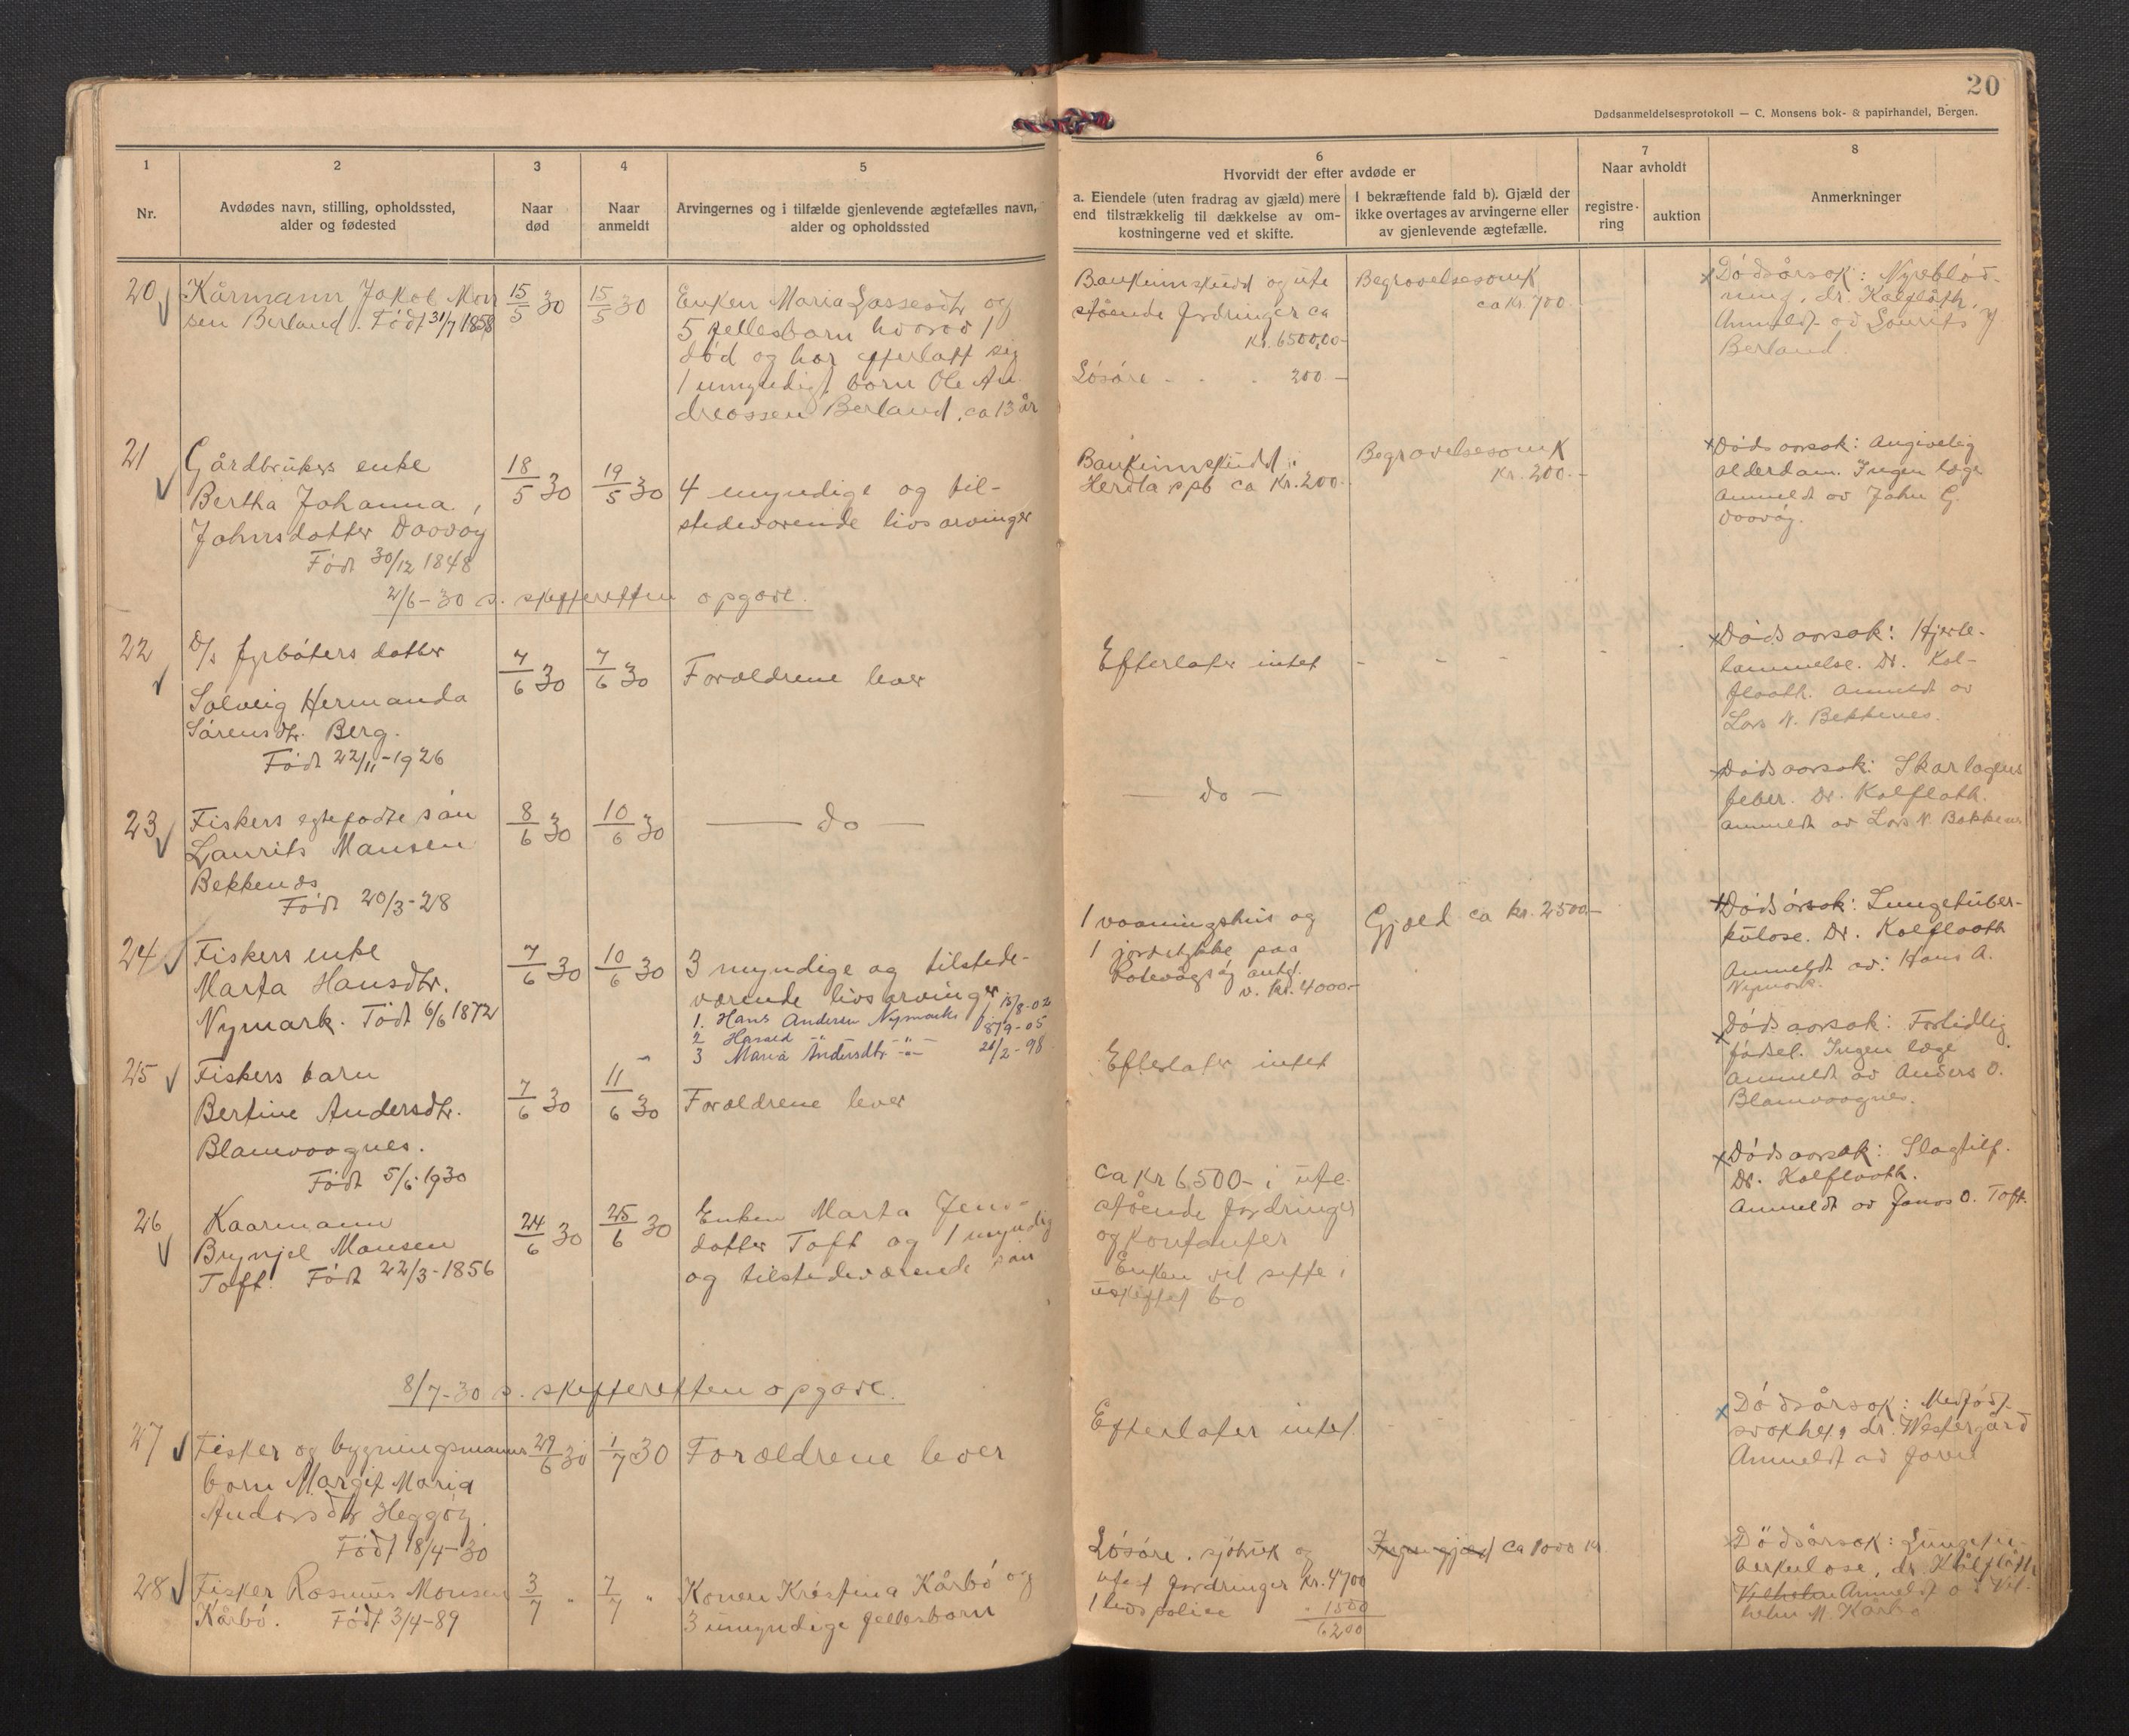 20
Dødsanmeldelsesprotokoll — C. Monsens bok- & papirhandel, Bergen.
1
Nr.
2
Avdødes navn, stilling, opholdssted,
alder og fødested
3
Naar
død
4
Naar
anmeldt
5
Arvingernes og i tilfælde gjenlevende ægtefælles navn,
alder og opholdssted
6
Hvorvidt der efter avdøde er
a. Eiendele (uten fradrag av gjæld) mere
end tilstrækkelig til dækkelse av om-
kostningerne ved et skifte.
I bekræftende fald b). Gjæld der
ikke overtages av arvingerne eller
av gjenlevende ægtefælle.
7
Naar avholdt
registre-
ring
auktion
8
Anmerkninger
20
Kårmann Jakob Mon
sen Berland. Født 31/7 1858
15/5 30
15/5 30
Enken Maria Lassesdtr og
5 fellesbarn hvorav 1
død og har efterlatt sig
1 umyndigt barn Ole An
dreassen Berland, ca 13 år
Bankinnskudd og ute
stående fordringer ca
Kr. 6500,00-
Løsøre - - - 200 -
Begravelsesomk
ca kr. 700.-
Dødsårsak: Nyreblød-
ning, dr. Kalflåth.
Anmeldt av Laurits J
Berland.
21
Gårdbrukers enke
Bertha Johanna
Johnsdatter Davøy
Født 30/12 1848
18/5 30
19/5 30
4 myndige og til-
stedeværende livsarvinger
Bankinnskudd i
Herdla spb ca kr. 200.-
Begravelsesomk
kr. 200.-
Dødsaarsak: Angivelig
alderdom. Ingen læge
Anmeldt av John G.
Davøy.
2/6-30 s. skifteretten opgave.
22
D/s fyrbøters datter
Solveig Hermanda
Sørensdtr. Berg.
Født 22/11-1926
4/6 30
7/6 30
Forældrene lever
Efterlater intet - - - -
Dødsaarsak: Hjerte-
lammelse. Dr. Kal-
flaath. Anmeldt av
Lars N. Bekkenes.
23
Fiskers egtefødte søn
Laurits Monsen
Bekkenes
Født 20/3-28
8/6 30
10/6 30
— do —
— do —
Dødsaarsak: Skarlagens
feber. Dr. Kalflath.
Anmeldt av Lars N. Bekkenes
24
Fiskers enke
Marta Hansdtr.
Nymark. Født 6/6 1872
7/6 30
10/6 30
3 myndige og tilstede-
værende livsarvinger
1. Hans Andersen Nymark f. 15/8-02
2 Harald -"- -"- 8/9-05
3 Maria Andersdtr -"- 21/2-98
1 vaaningshus og
1 jordstykke paa
antat
v. kr. 4000-
Gjæld ca kr. 2500.-
Dødsårsak: Lungetuber-
kulose. Dr. Kalflaath
Anmeldt av: Hans A.
Nymark.
25
Fiskers barn
Bertine Andersdtr.
Blomvaagnes.
Født 5/6 1930
7/6 30
11/6 30
Forældrene lever
Efterlater intet
Dødsaarsak: Fortidlig
fødsel. Ingen læge
Anmeldt av Anders O.
Blomvaagnes.
26
Kaarmann
Brynjel Monsen
Toft. Født 22/3-1856
24/6 30
25/6 30
Enken Marta Jens-
datter Toft og 1 myndig
og tilstedeværende søn
Ca Kr 6500- i ute-
stående fordringer
og kontanter
Enken vil sitte i
uskiftet bo
Dødsaarsak: Slagtilf.
Dr. Kalflaath.
Anmeldt av Jonas O. Toft.
8/7-30 s. skifteretten opgave.
27
Fisker og bygningsmanns
barn Margit Maria
Andersdtr Heggøy.
Født 18/4-30
29/6 30
1/7 30
Forældrene lever
Efterlater intet.
Dødsårsak: Medfødt
svakhet, dr. Westergård
Anmeldt av faren
28
Fisker Rasmus Monsen
Kårbø. Født 3/4-89
3/7 "
7/7 "
Konen Kristina Kårbø og
3 umyndige fellesbarn
Løsøre, sjøbruk og
utest fordringer kr. 4700
1 livspolice " 1500
6200
Ingen gjæld ca 1000 kr.
Dødsårsak: Lungetu-
berkulose, dr. Kalflåth
Vilhelm Anmeldt av Vil-
helm M. Kårbø